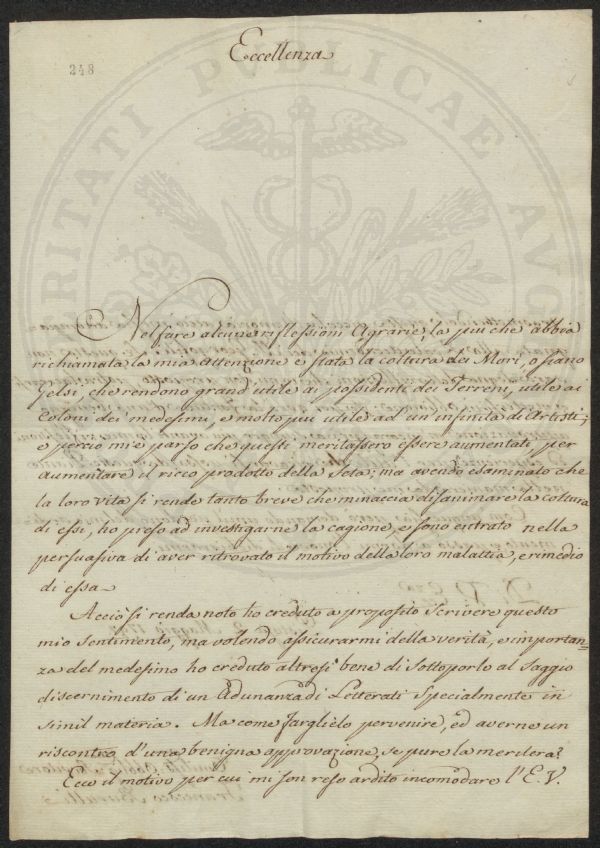 Eccellenza
248
PROSPERITATI PUBLICAE AUGENDAE
Nel fare alcune riflessioni Agrarie, la più che abbia
richiamata la mia attenzione è stata la coltura dei Mori, ossiano
Gelsi, che rendono grand'utile ai possidenti dei Terreni, utile ai
Coloni dei medesimi, e molto più utile ad un'infinità di Artisti;
e perciò mi è parso che questi meritassero essere aumentati per
aumentare il ricco prodotto della Seta; ma avendo esaminato che
la loro vita si rende tanto breve che minaccia disanimare la coltura
di essi, ho preso ad investigarne la cagione, e sono entrato nella
persuasiva di aver ritrovato il motivo della loro malattia, e rimedio
di essa
Acciò si renda noto ho creduto a proposito scrivere questo
mio sentimento, ma volendo assicurarmi della verità, e importan-
za del medesimo ho creduto altresì bene di sottoporlo al Saggio
discernimento di un Adunanza di Letterati Specialmente in
simil materia. Ma come farglielo pervenire, ed averne un
riscontro d'una benigna approvazione, se pure la meriterà?
Ecco il motivo per cui mi son reso ardito incomodare l'E.V.